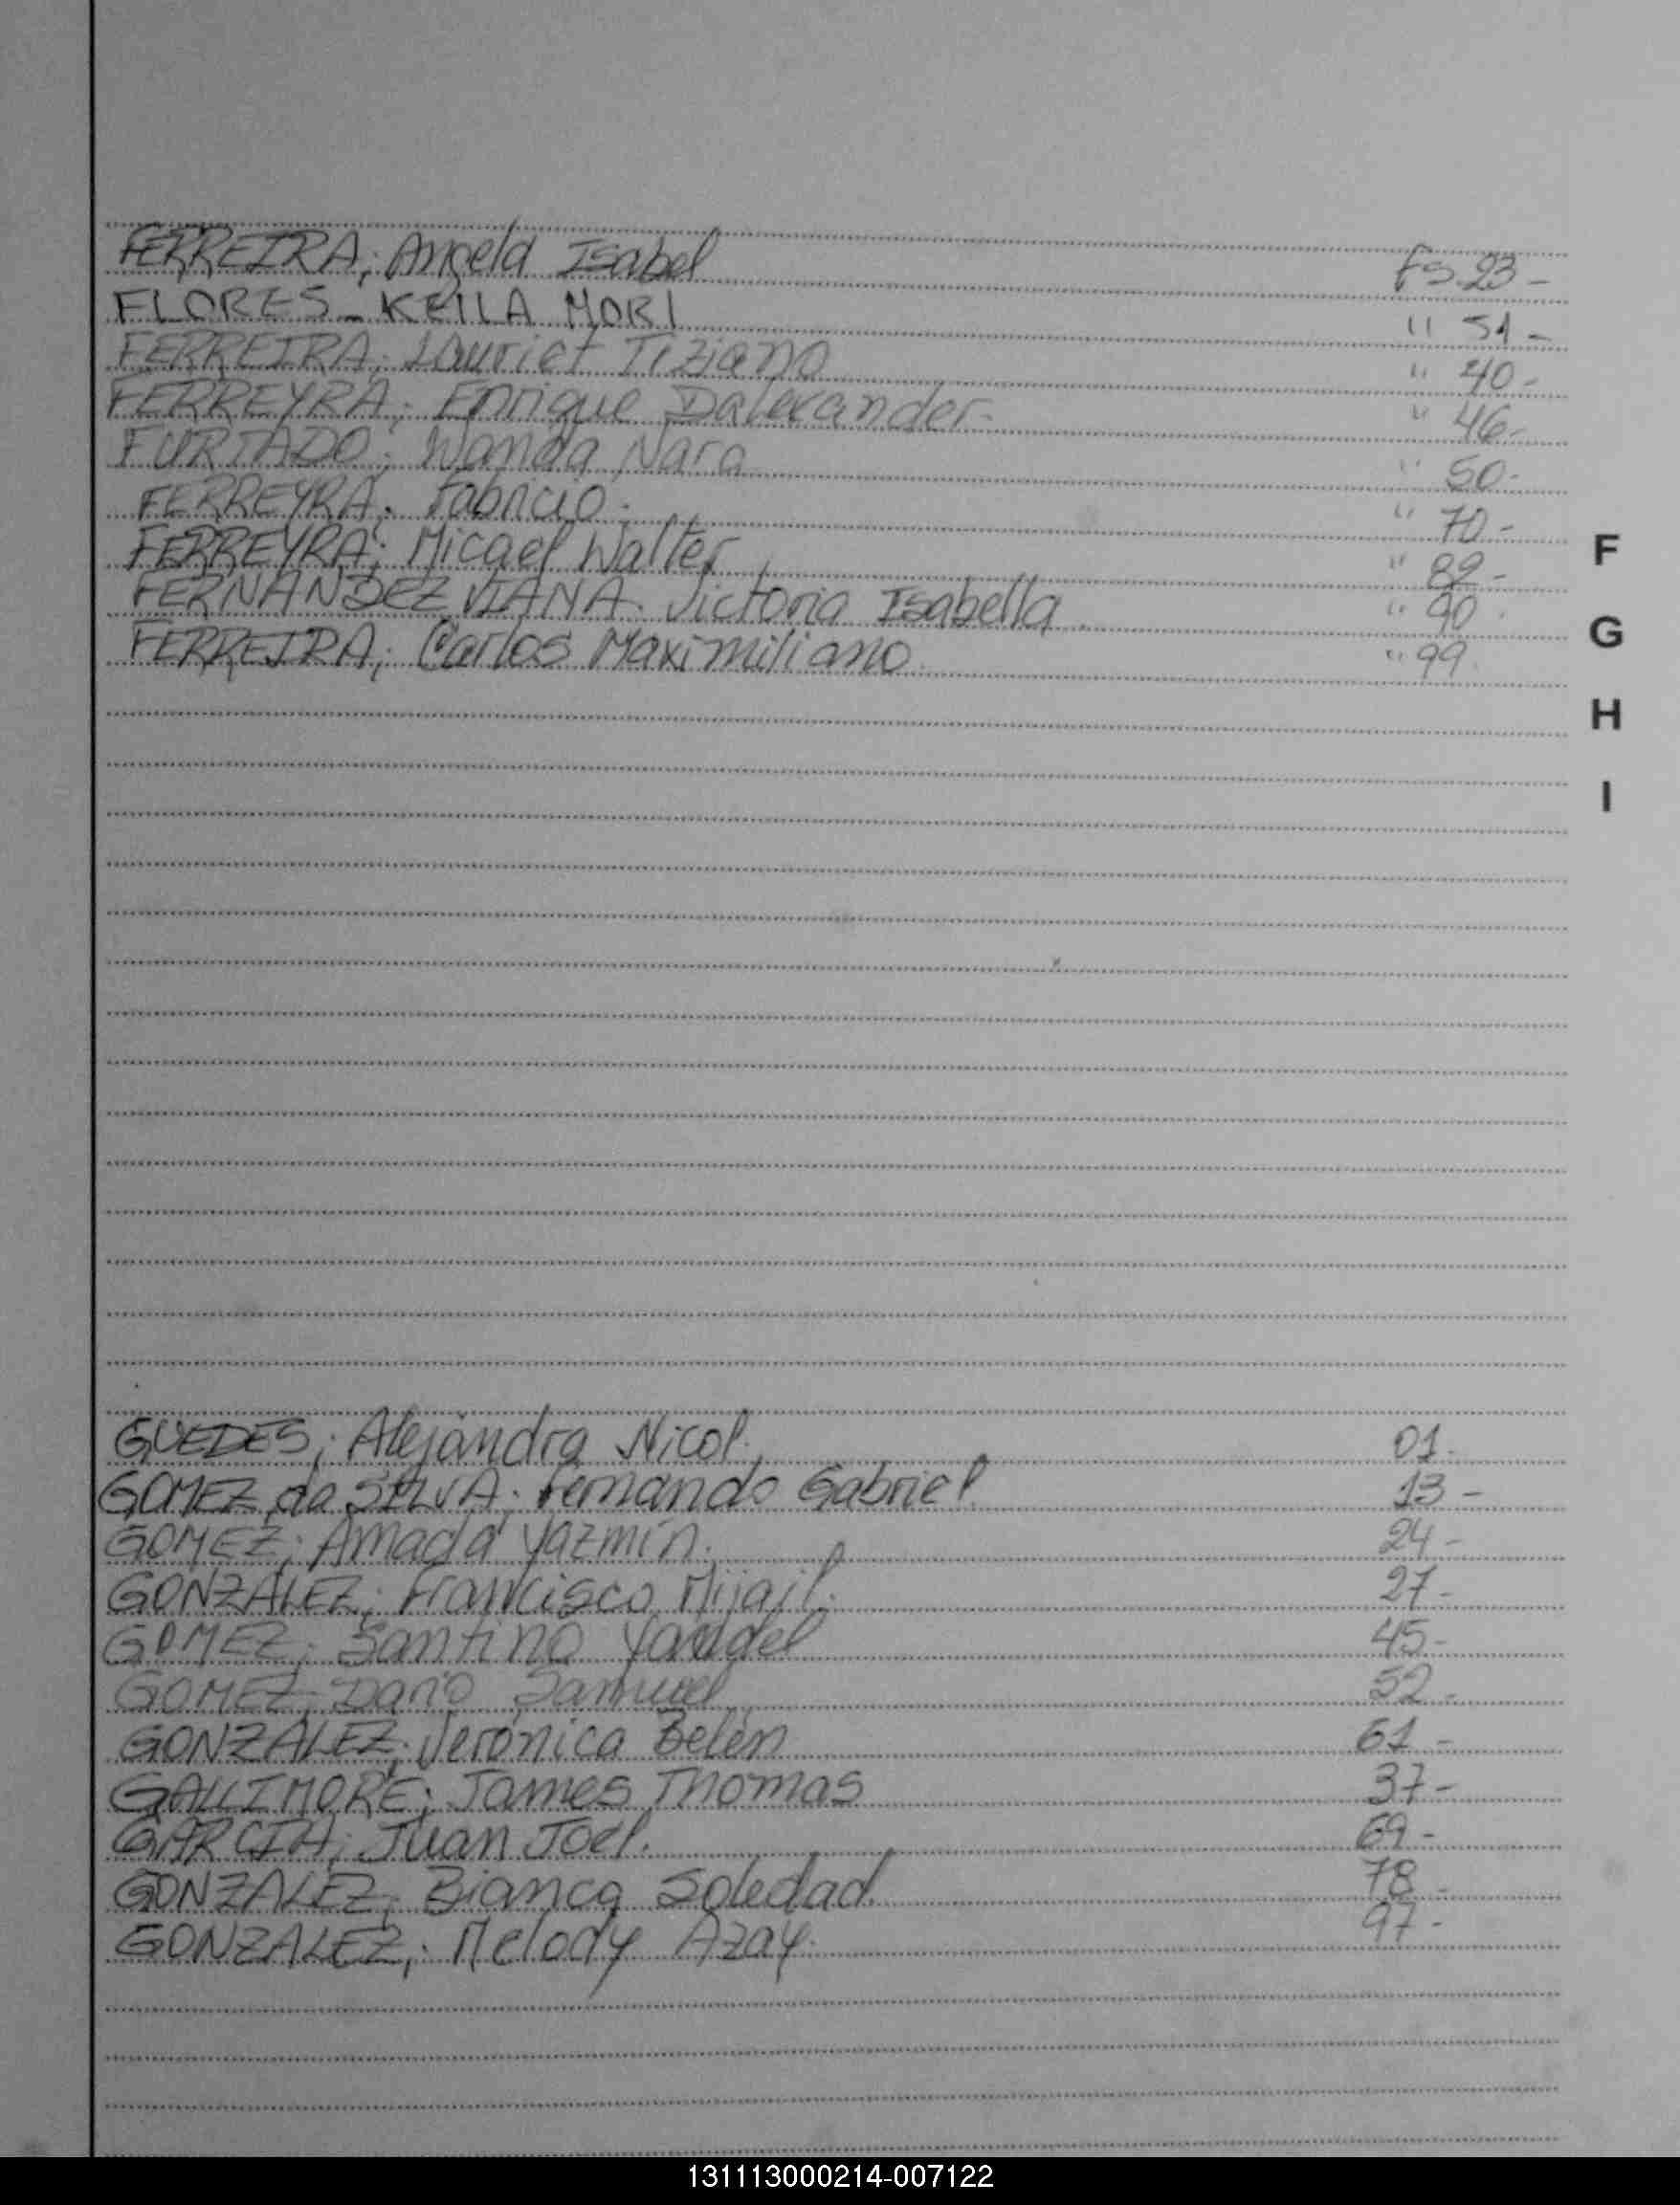 FERREIRA; Angela Isabel fs. 23 -
FLORES - KEILA MORI " 51 -
FERREIRA; Lauriet Tiziano " 40 -
FERREYRA; Enrique Dalexander. " 46 -
FURTADO; Wanda Nara " 50 -
FERREYRA; Fabricio. " 70 -
FERREYRA; Micael Walter " 82 -
FERNANDEZ VIANA. Victoria Isabella. " 90.
FERREIRA; Carlos Maximiliano. " 99.
F
G
H
I
GUEDES; Alejandra Nicol. 01.
GOMEZ da SILVA. Fernando Gabriel. 13 -
GOMEZ; Amada Yazmín. 24 -
GONZALEZ; Francisco Mijail. 27 -
GOMEZ; Santino Yandel 45 -
GOMEZ, Darío Samuel 52 -
GONZALEZ; Verónica Belén 61 -
GALLIMORE; James Thomas 37 -
GARCIA; Juan Joel. 69 -
GONZALEZ; Bianca Soledad. 78 -
GONZALEZ; Melody Azay. 97 -
131113000214-007122